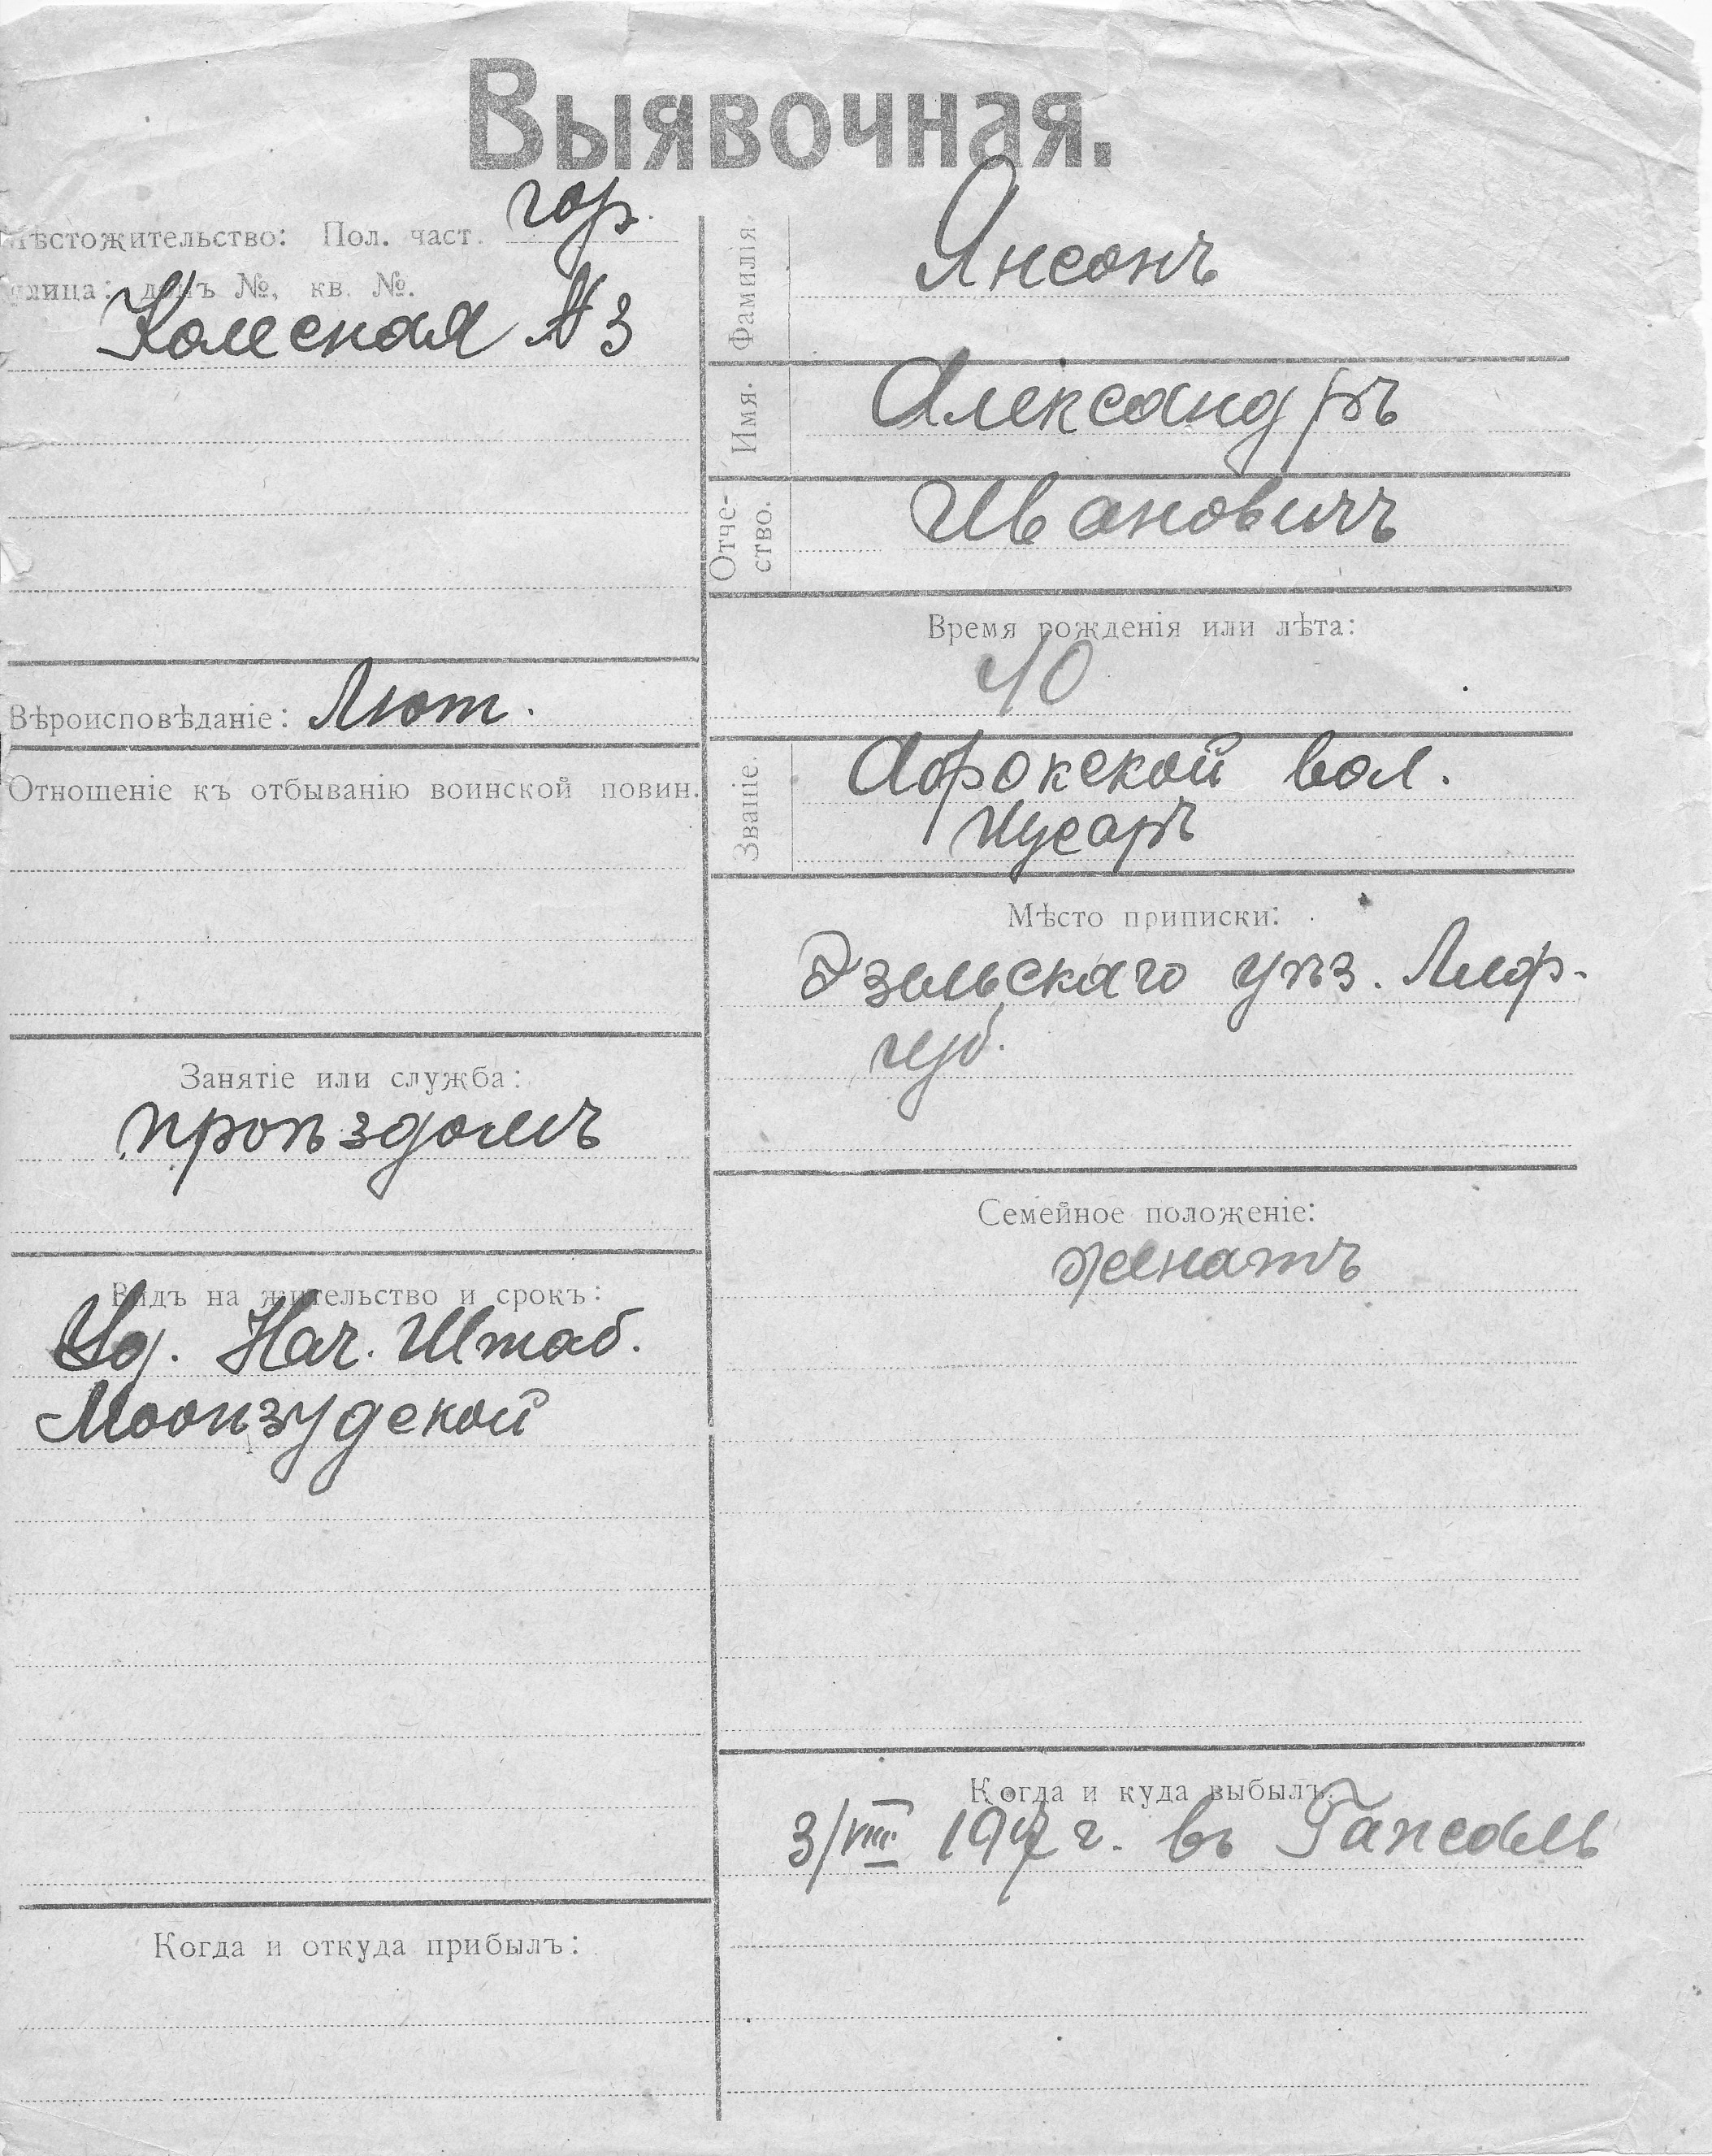 Выявочная.
Мѣстожительство: Пол. част. гор.
улица: домъ №, кв. №.
№ 3
Вѣроисповѣданіе: Лют.
Отношеніе къ отбыванію воинской повин.
Занятіе или служба:
проѣздомъ
Видъ на жительство и срокъ:
Уд. Нач. Штаб.
Моонзудской
Когда и откуда прибылъ:
Фамилія. Янсонъ
Имя. Александръ
Отче-
ство. Ивановичъ
Время рожденія или лѣта:
40
Званіе. вол.
Мѣсто приписки:
Эзельскаго уѣз. Лиф-
губ.
Семейное положеніе:
женатъ
Когда и куда выбылъ:
3/VIII 1917 г. въ Гапсаль